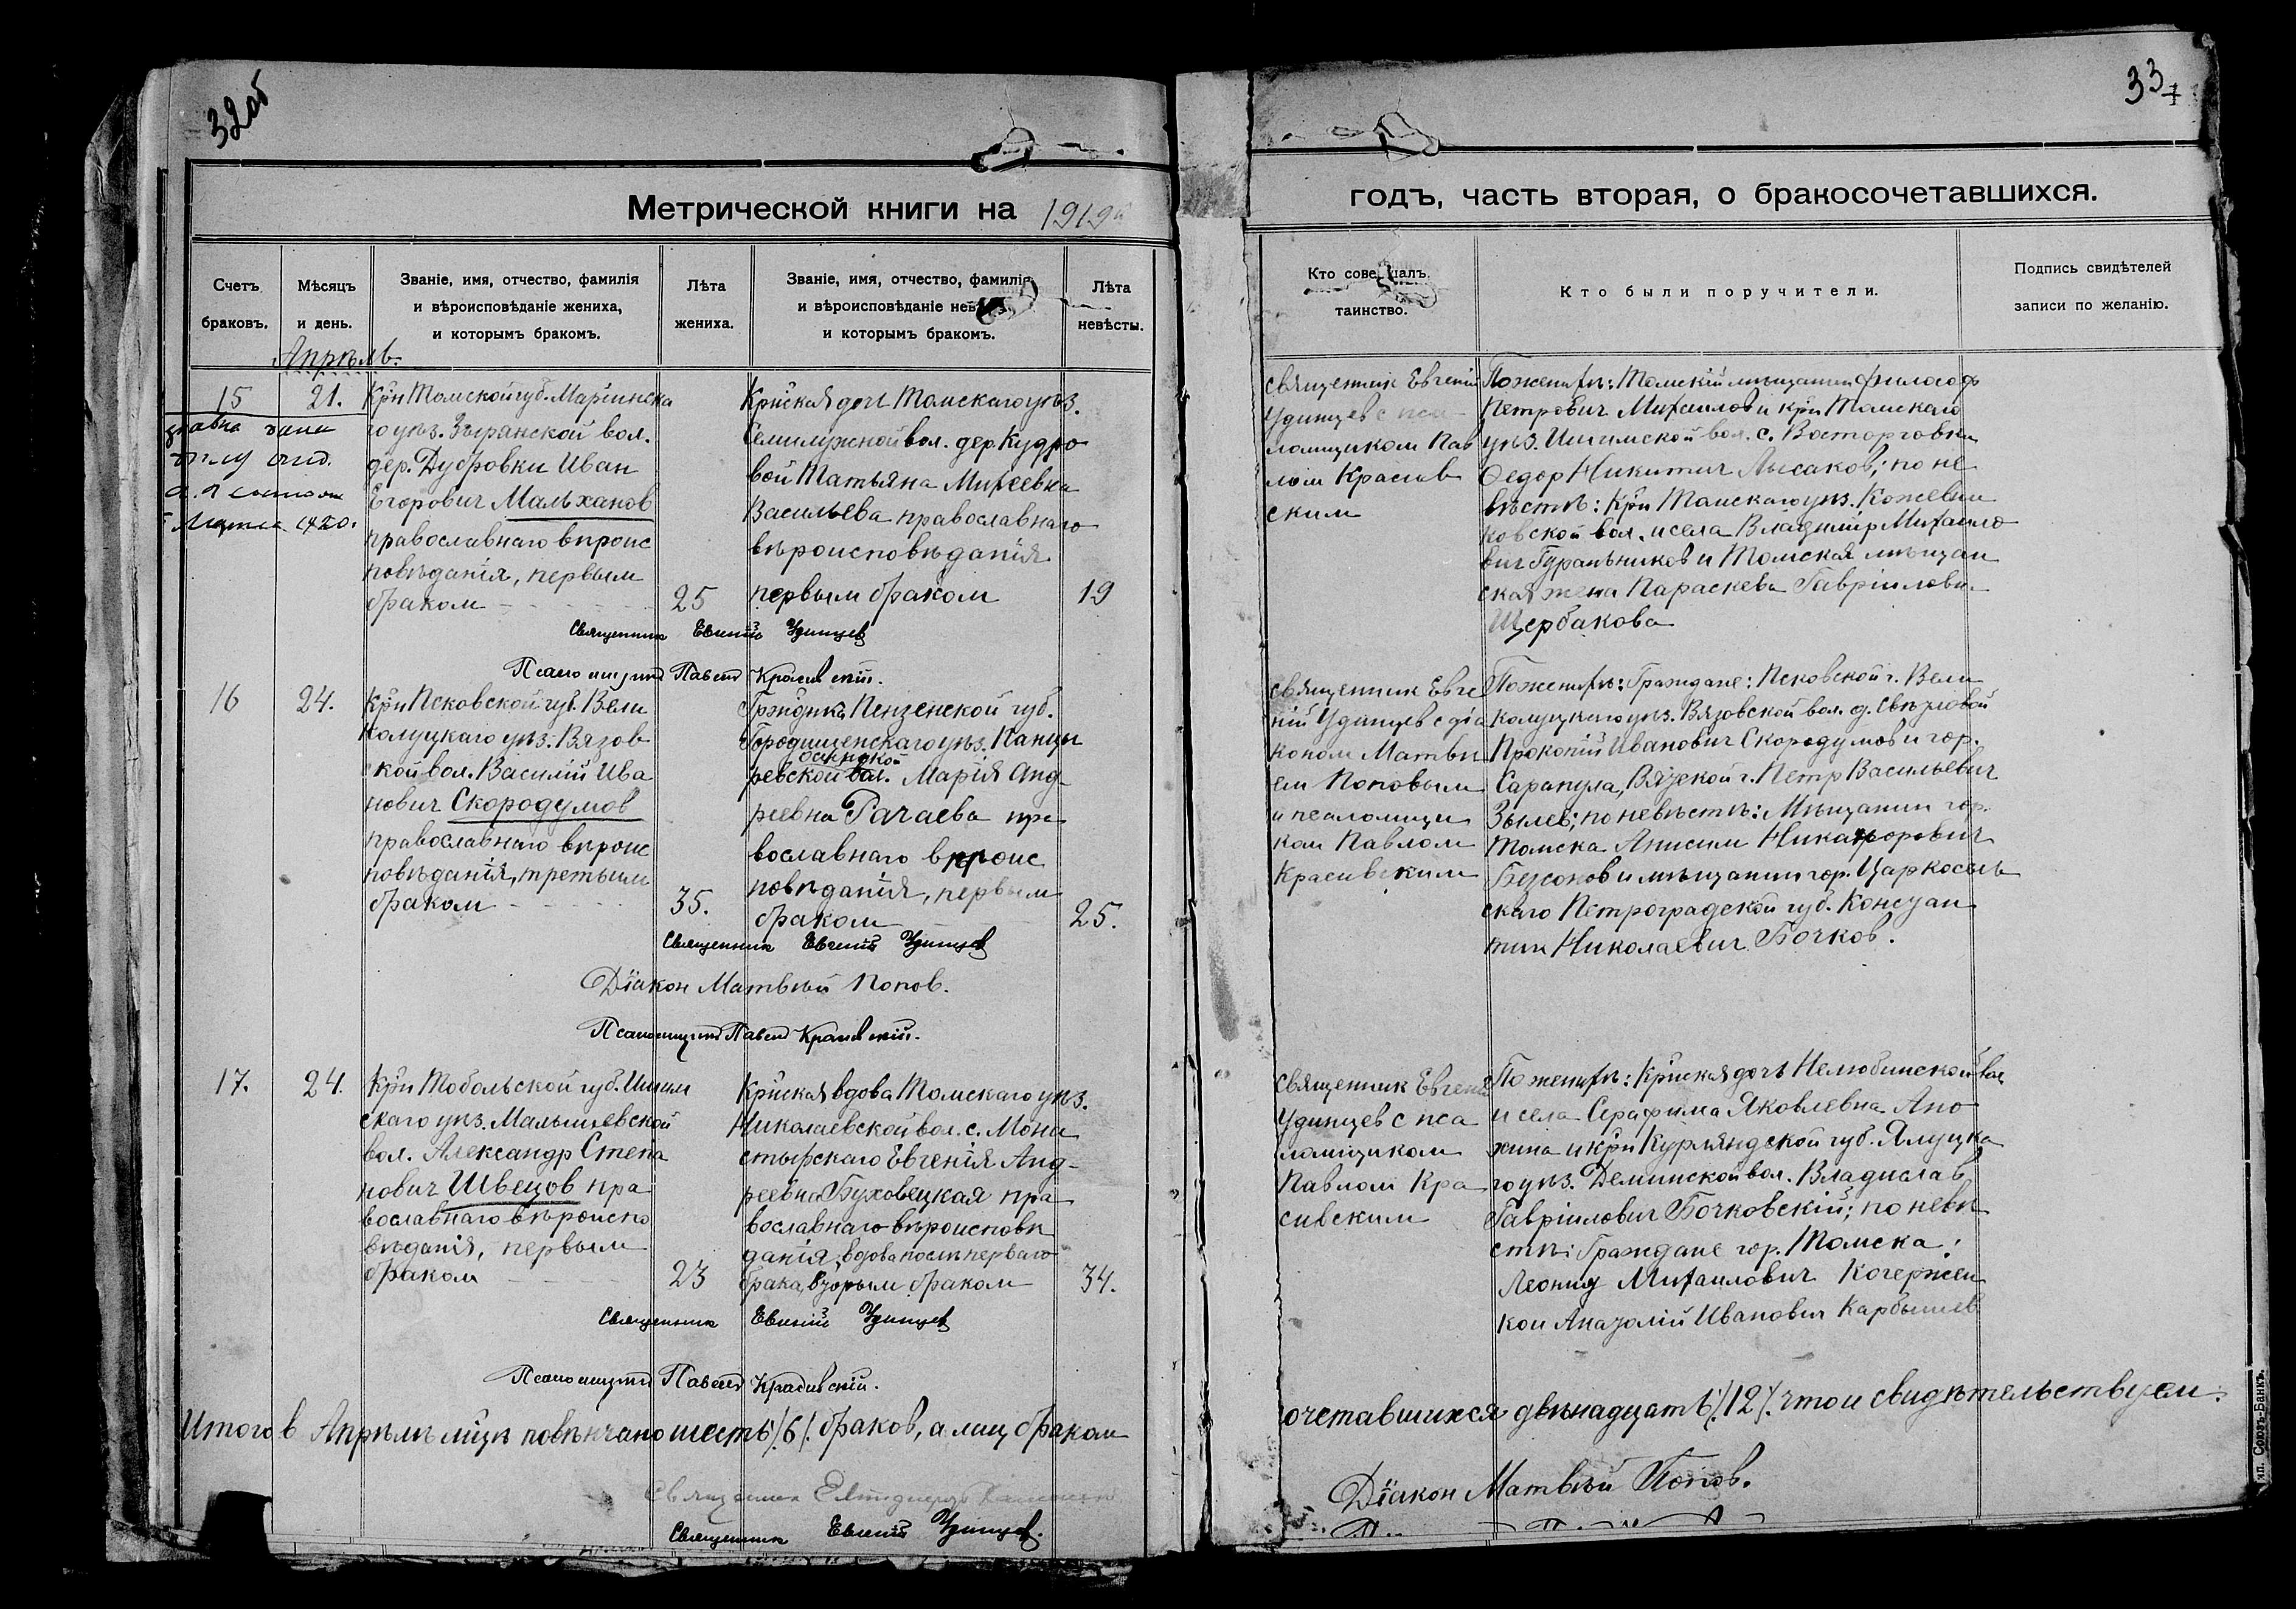 32об
33
Метрической книги на 1919й
годъ, часть вторая, о бракосочетавшихся.
Счетъ браковъ.
Мѣсяцъ и день.
Званіе, имя, отчество, фамилія
и вѣроисповѣданіе жениха,
и которымъ бракомъ.
Лѣта жениха.
Званіе, имя, отчество, фамилія
и вѣроисповѣданіе
и которымъ бракомъ.
Лѣта невѣсты.
Кто таинство.
Кто были поручители.
Подпись свидѣтелей
записи по желанію.
Апрѣль.
15
21.
Крн Томской губ. Маріинска
го уѣз. Зырянской вол.
дер. Дубровки Иван
Егорович Мальханов
православнаго вѣроис
повѣданія, первым
браком
25
Крнская дочь Томскаго уѣз.
Семилужной вол. дер Кудро
вой Татьяна Михеевна
Васильева православнаго
вѣроисповѣданія
первым браком
19
Священник Евгеній Удинцев
Псаломщик Павел Красивскій.
священник Евгеній
Удинцев с пса
ломщиком Пав
лом Красив
ским
По женихѣ: Томскій мѣщанин Философ
Петрович Михаилов и крн Томскаго
уѣз. Ишимской вол. с. Васторговки
Федор Никитич Лысаков; по не
вѣстѣ: Крн Томскаго уѣз. Кожевни
ковской вол. и села Владимір Михаило
вич Гуральников и Томская мѣщан
ская жена Параскева Гавріиловн.
Щербакова
16
24.
Крн Псковской губ. Вели
колуцкаго уѣз. Вязов
ской вол. Василій Ива
нович Скородумов
православнаго вѣроис
повѣданія, третьим
браком
35.
Гражднка Пензенской губ.
Городищенскаго уѣз. Панцы
ревской вол. Марія Анд-
реевна Рачаева пра-
вославнаго вѣроис
повѣданія, первым
браком
25.
Священник Евгеній Удинцев
Діакон Матвѣй Попов.
Псаломщик Павел Красивскій.
священник Евге
ній Удинцев с діа
коном Матвѣ
ем Поповым
и псаломщи
ком Павлом
Красивским
По женихѣ: Граждане: Псковской г. Вели
колуцкаго уѣз. Вязовской вол. д.
Прокопій Иванович Скородумов и гор.
Сарапула, Вятской г. Петр Васильевич
Зылев; по невѣстѣ: Мѣщанин гор.
Томска Анисим Никанорович
Бессонов и мѣщанин гор. Царкосель
скаго Петроградской губ. Констан
тин Николаевич Бочков.
17.
24.
Крн Тобольской губ. Ишим
скаго уѣз. Малышевской
вол. Александр Степа
нович Швецов пра
вославнаго вѣроиспо
вѣданія, первым
браком
23
Крнская вдова Томскаго уѣз.
Николаевской вол. с. Мона
стырскаго Евгенія Анд-
реевна Буховецкая пра
вославнаго вѣроисповѣ
данія, вдова послѣ перваго
брака, вторым браком
34.
Священник Евгеній Удинцев
Псаломщик Павел Красивскій.
священник Евгеній
Удинцев с пса
ломщиком
Павлом Кра
сивским
По женихѣ: Крнская дочь Нелюбинской вол
и села Серафима Яковлевна Ано
хина и крн Курляндской губ. Ялуцка
го уѣз. Деминской вол. Владислав
Гавріилович Бочковскій; по невѣ
стѣ: Граждане гор. Томска:
Леонид Михаилович Кочержен
ко и Анатолій Иванович Карбышев
Итого в Апрѣлѣ мцѣ повѣнчано шесть /6/ браков, а лиц браком
сочетавшихся двѣнадцать /12/ что и свидѣтельствуем:
Священник Евгеній Удинцев.
Діакон Матвѣй Попов.
Союзъ-Банкъ.